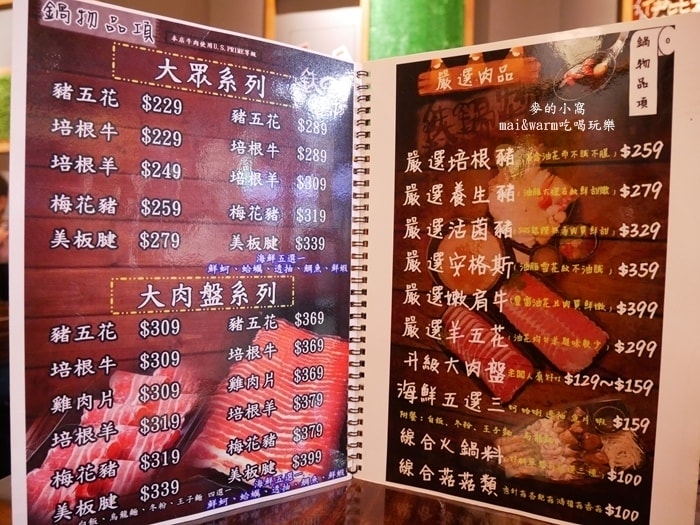 鍋物品項
本店牛肉使用U.S.PRIME等級
大眾系列
豬五花 $229
培根牛 $239
培根羊 $249
梅花豬 $259
美板腱 $279
豬五花 $289
培根牛 $289
培根羊 $309
梅花豬 $319
美板腱 $339
海鮮五選一
鮮蚵、蛤蠣、透抽、鯛魚、鮮蝦
大肉盤系列
豬五花 $309
培根牛 $309
雞肉片 $309
培根羊 $319
梅花豬 $319
美板腱 $339
白飯、烏龍麵、冬粉、王子麵 四選一
豬五花 $369
培根牛 $369
雞肉片 $369
培根羊 $379
梅花豬 $379
美板腱 $399
海鮮五選一
鮮蚵、蛤蠣、透抽、鯛魚、鮮蝦
鍋物品項
嚴選肉品
麥的小窩
mai&warm吃喝玩樂
嚴選培根豬 $259
嚴選養生豬 $279
嚴選活菌豬 $329
嚴選安格斯 $359
嚴選嫩肩牛 $399
嚴選羊五花 $299
升級大肉盤 $129~$159
海鮮五選三 $159
附餐：白飯、冬粉、王子麵
綜合火鍋料 $100
綜合菇菇類 $100